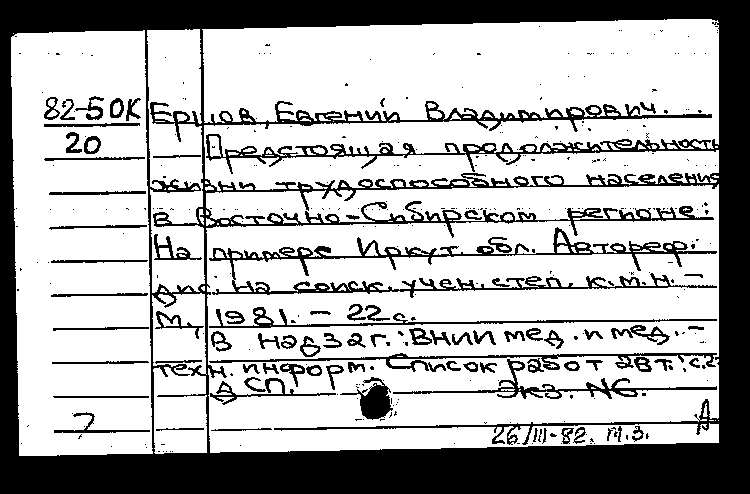 82-5 ОК Ершов, Евгений Владимирович.
20 Предстоящая продолжительность
жизни трудоспособного населения
в Восточно-Сибирском регионе:
На примере Иркут. обл. Автореф.
дис. на соиск. учен. степ. к.м.н. -
М., 1981. - 22 с.
В надзаг.: ВНИИ мед. и мед.-
техн. информ. Список работ авт.: с.2
ДСП. Экз. №6.
26/III-82. м.з. А